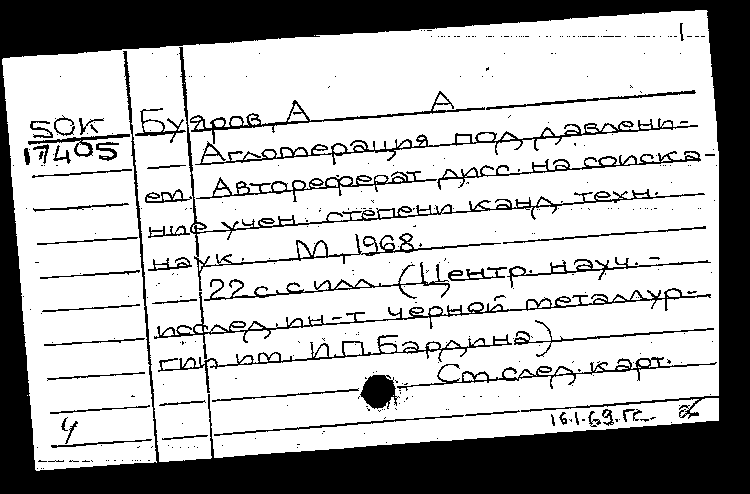 1
50К Буяров, А А
17405 Агломерация под давлени-
ем. Автореферат дисс. на соиска-
ние учен. степени канд. техн.
наук. М., 1968.
22 с. с илл. (Центр. науч.-
исслед. ин-т черной металлур-
гии им. И.П.Бардина)
См след. карт.
4 16.1.69.